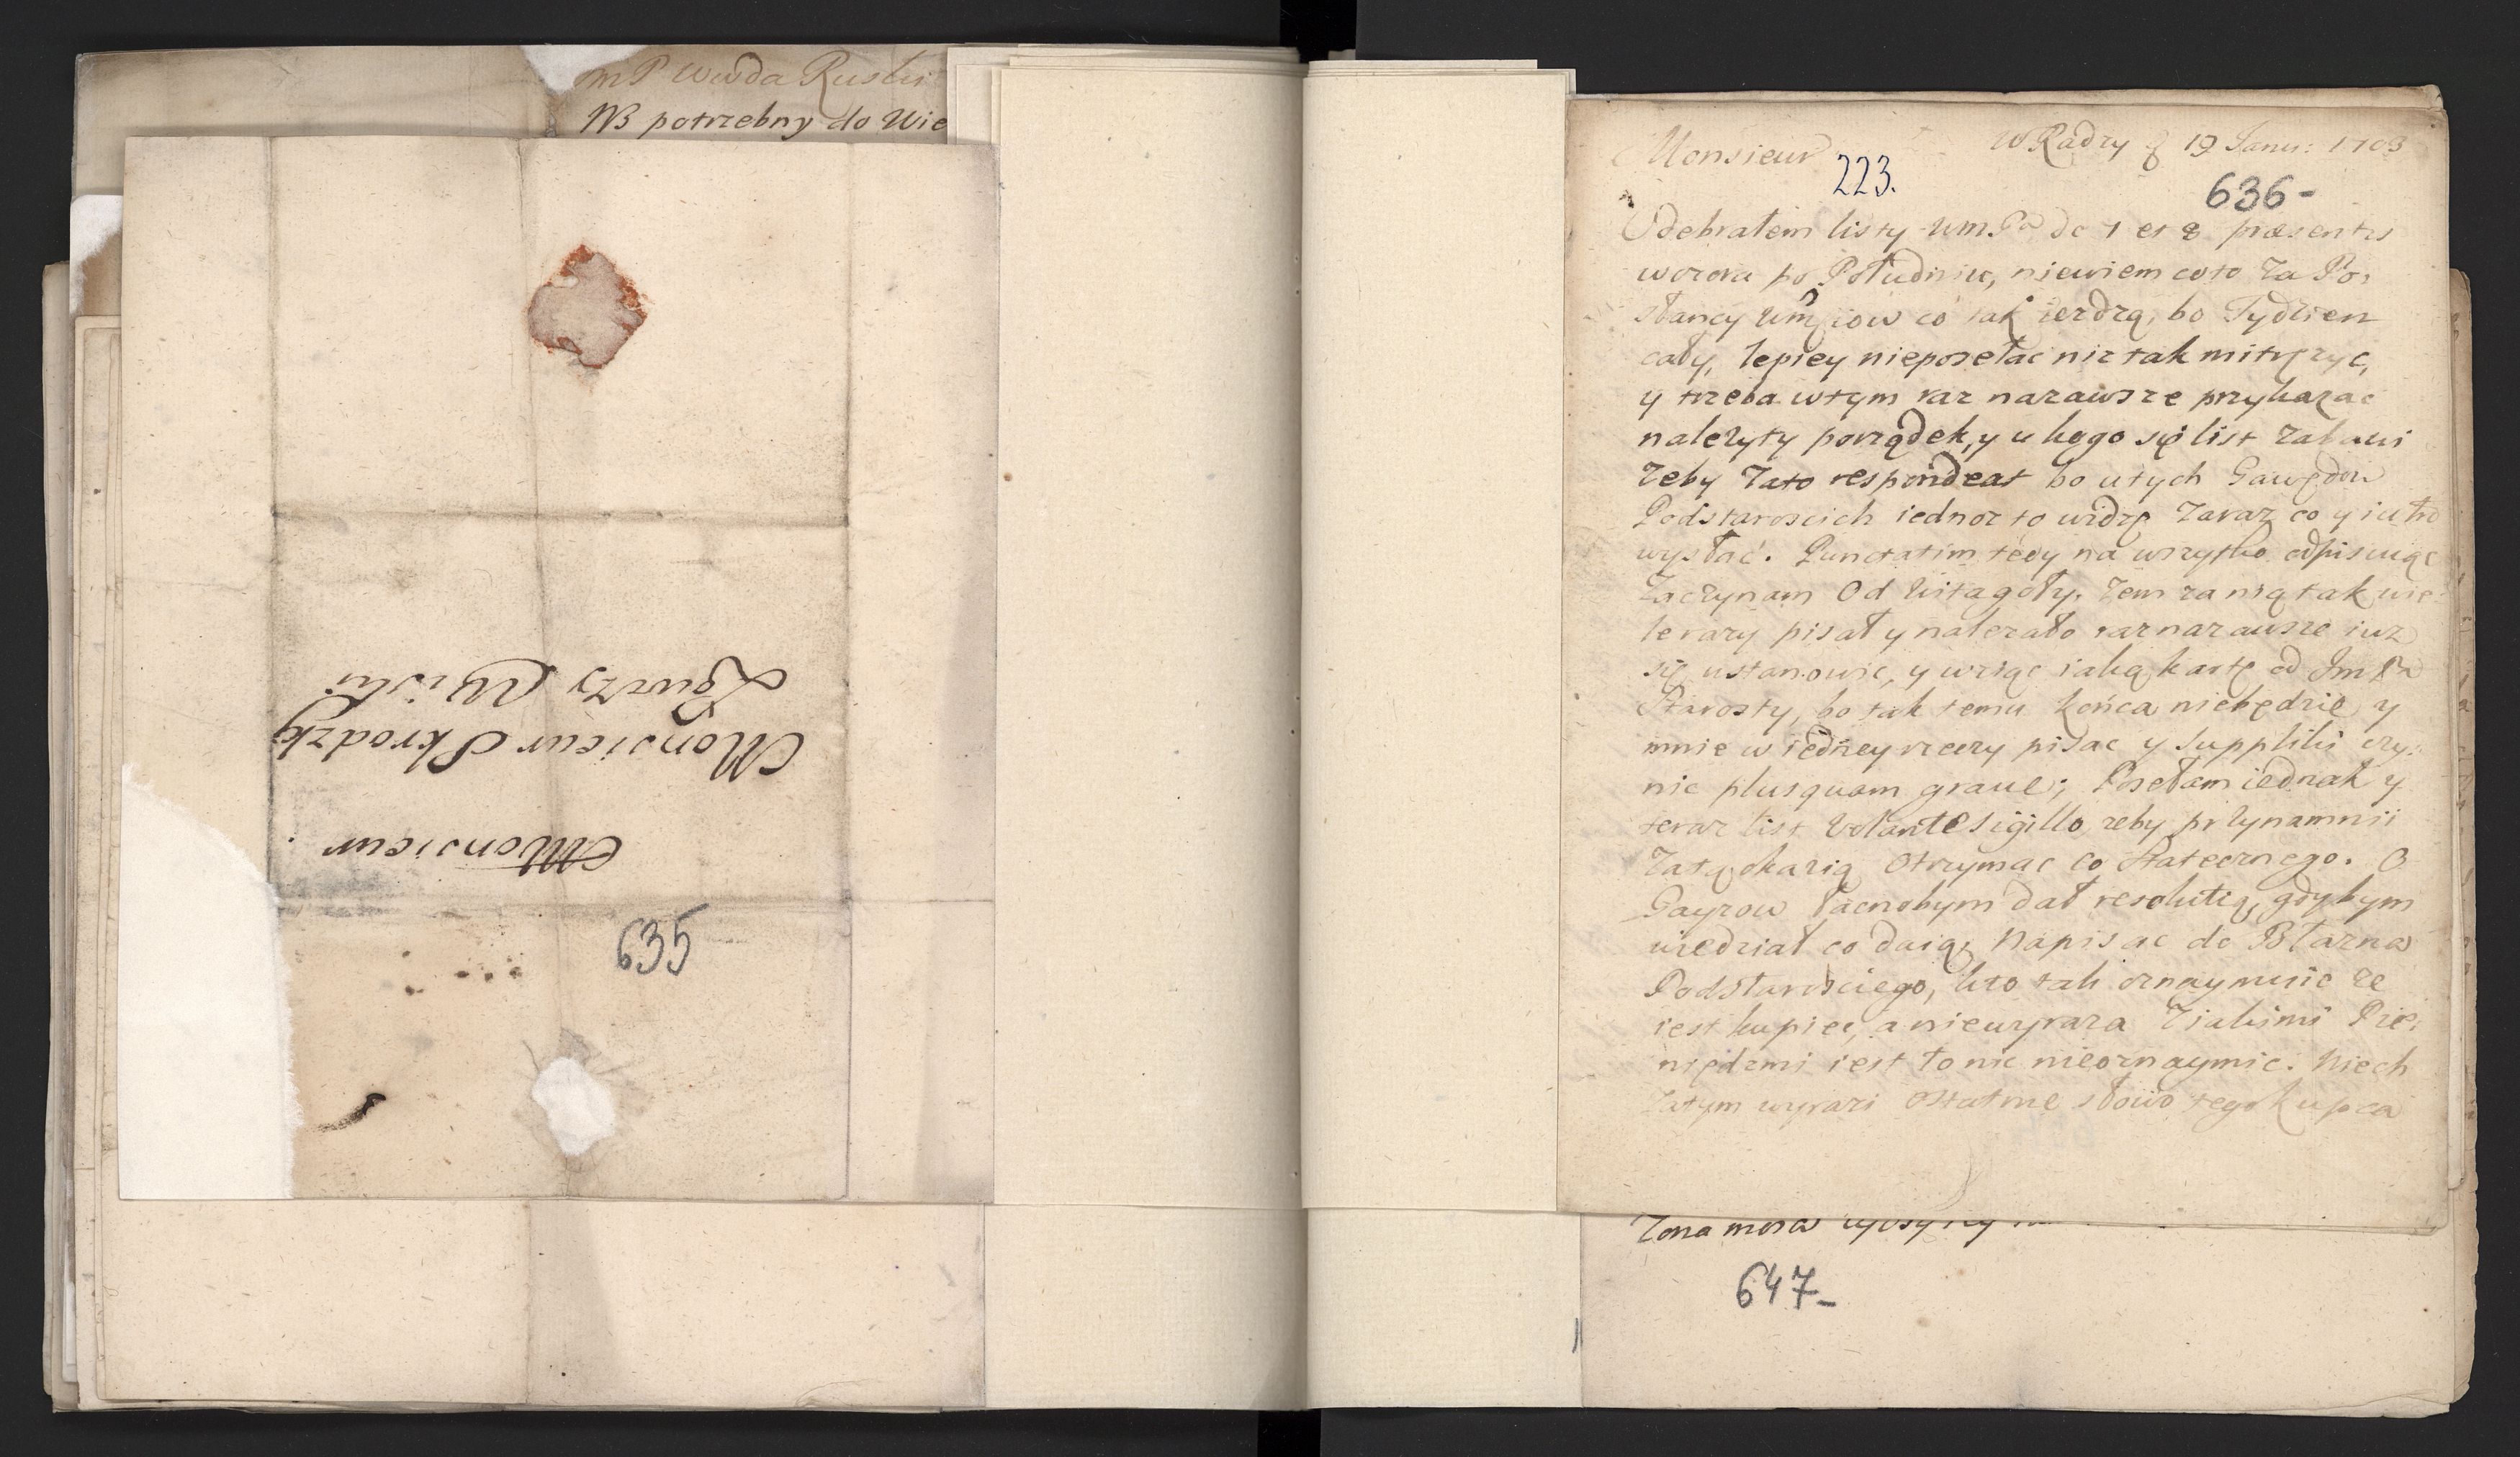 mP Wwda Ruski
NB potrzebny do Wie
Monsieur
Monsieur Skrodzky
Łowczy Wiski
635
Monsieur
W Radzy 19 Janu: 1703
223.
636-
Odebrałem listy Wm Pa de 1 et 8 præsentis
wczora po Południu, niewiem co to Za Po,
słancy co tak iezdzą, bo Tydzien
cały, lepiey nieposełac niz tak mitręzyc,
y trzeba wtym raz nazawsze przykazac
nalezyty porządek, y u kogo się list Zabawi
Zeby Zato respondeat bo utych Gawędow
Podstaroscich iedno to widzę Zaraz co y iutro
wysłać. Punctatim tedy na wszytko odpisuiąc
Zaczynam Od Witagoły. Zem za nią tak wie
le razy pisał y nalezało raz nazawsze iuz
się ustanowic, y wziąc iaką kartę od Jm Pa
Starosty, bo tak temu końca niebędzie y
mnie w iedney rzeczy pisac y Suppliki czy:
nic plusquam graue; Posełam iednak y
teraz list Volante Sigillo, zeby przynamnii
Zatą okazią Otrzymac co Statecznego. O
Gayzow łacnobym dał resolutią, gdybym
wiedział co daią, Napisac do Błazna
Podstarosciego, kto tak oznaymuie ze
iest kupiec, a niewyraza Z iakimi Pie,
niędzmi iest to nic nieoznaymic. Niech
Zatym wyrazi Ostatnie słowo tego kupca
Zona mosci
647-